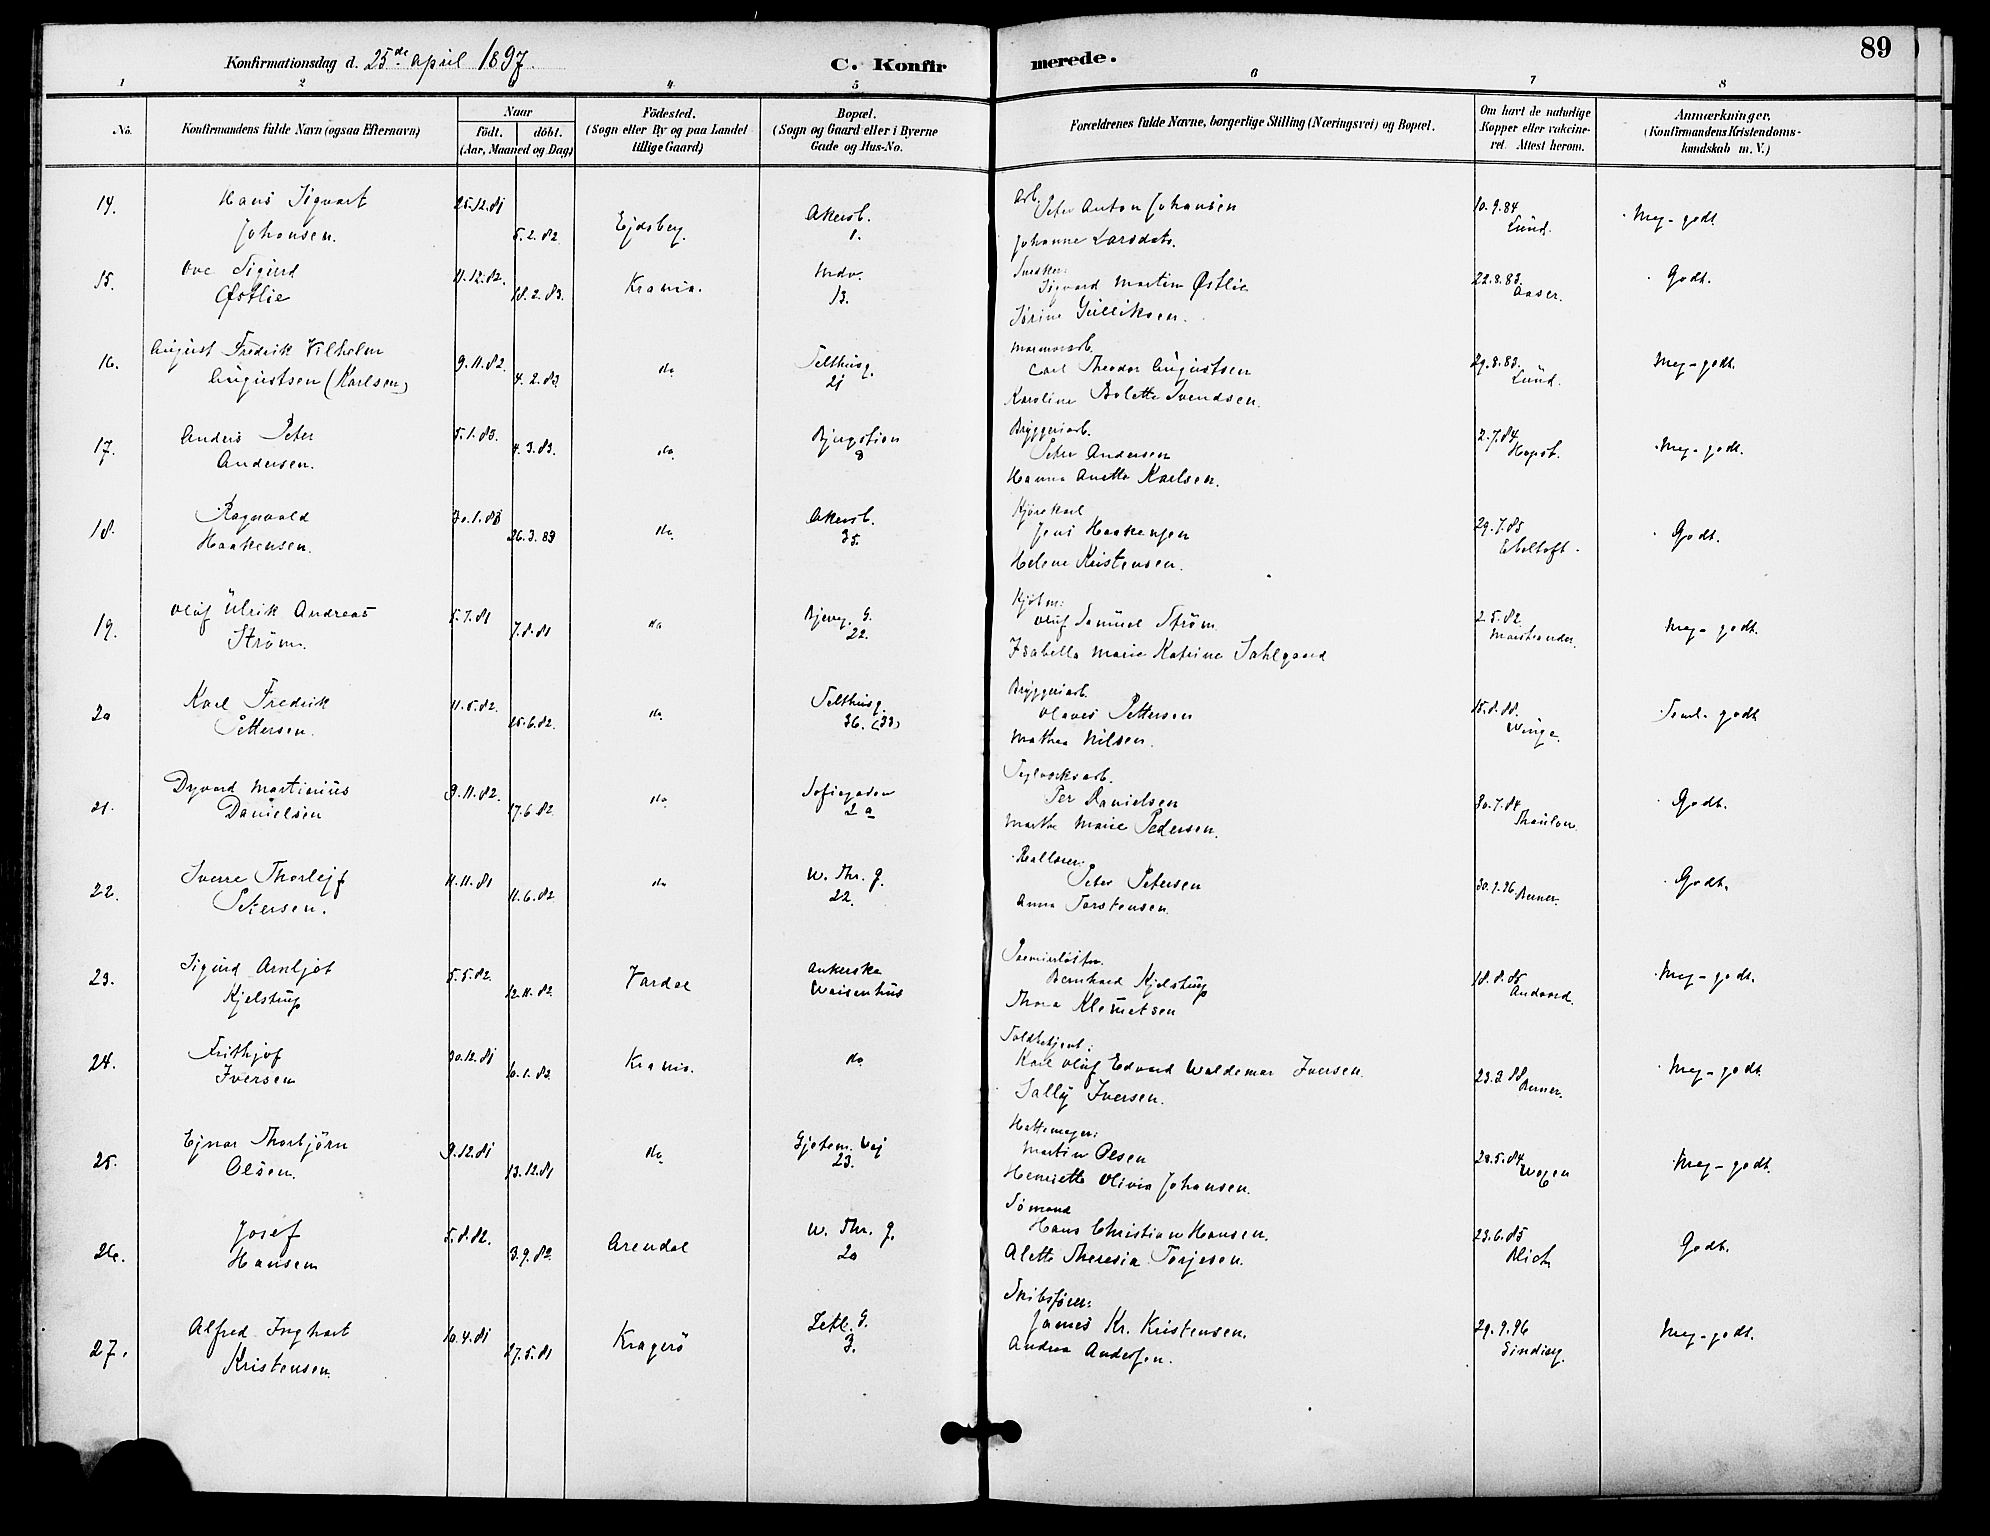 89
Konfirmationsdag d. 25de April 1897.
C. Konfirmerede.
1 2 3 4 5 6 7 8
No.
Konfirmandens fulde Navn (ogsaa Efternavn)
Naar
födt. döbt.
(Aar, Maaned og Dag)
Födested.
(Sogn eller By og paa Landet
tillige Gaard)
Bopæl.
(Sogn og Gaard eller i Byerne
Gade og Hus-No.
Forældrenes fulde Navne, borgerlige Stilling (Næringsvei) og Bopæl.
Om havt de naturlige
Kopper eller vakcine-
ret. Attest herom.
Anmærkninger.
(Konfirmandens Kristendoms-
kundskab m. V.)
14. Hans Sigvart Johansen. 25.12.81 5.2.82 Ejdsberg. Akersb. 1. Arb. Peter Anton Johansen Johanne Larsdatr. 10.9.84 Lund. Meg-godt
15. Ove Sigurd Østlie 11.12.82. 18.2.83. Krania. 13. Snedker: Sigvard Martin Østlie Sörine Gulliksen. 22.8.83. Aaser. Godt.
16. August Fredrik Vilhelm Augustsen (Karlsen) 9.11.82. 4.2.83 do Telthusg. 21 Marmorarb. Carl Theodor Augustsen Karoline Bolette Svendsen. 29.8.83. Lund. Meg-godt.
17. Anders Peter Andersen. 5.1.83. 4.3.83. do Bjergstien 8 Bryggeriarb. Peter Andersen Hanna Anette Karlsen. 2.7.84 Hopst. Meg-godt.
18. Ragnvald Haakensen. 30.1.83 26.3.83 do Akersb. 35. Kjörekarl Jens Haakensen Helene Kristensen. 29.7.85 Ebeltoft. Godt.
19. Oluf Ulrik Andreas Ström. 5.7.81 7.8.81 do Bjerreg. G. 22. Kjöbm: Oluf Samuel Ström Isabella Marie Katrine Dahlgaard 2.5.82. Marstrander. Meg-godt.
20 Karl Fredrik Pettersen. 11.5.82. 25.6.82. do Telthusg. 36. (33) Bryggeriarb. Olaves Pettersen Mathea Nilsen. 15.8.88. Winge. Teml. godt
21. Dyvard Martinius Danielsen 9.11.82. 17.6.82. do Sofiegaden 2 a Teglverksarb. Per Danielsen Marthe Marie Pedersen. 30.7.84 Thaulow. Godt.
22. Sverre Thorlejf Petersen. 11.11.81 11.6.82 do W. Thr. g. 22. Peter Petersen Anna Torstensen. 30.9.96 Berner. Godt.
23. Sigurd Arnljot Kjelstrup 5.5.82. 12.11.82. Vardal Ankerske Waisenhus Premierlöitn. Bernhard Kjelstrup Thora Klemetsen 18.8.86 Andvord. Meg-godt.
24. Frithjof Iversen 30.12.81 6.1.82 Krania. do Toldbetjent: Karl Oluf Edvard Waldemar Iversen. Sally Iversen. 23.3.88 Berner. Meg-godt
25. Ejnar Thorbjörn Olsen. 9.12.81 13.12.81 do Gjetem. Vej 23. Hattemager: Martin Olsen Henriette Olivia Johansen. 28.5.84 Meg-godt.
26. Josef Hansen 5.8.82. 3.9.82 Arendal W. Thr. g. 20 Sömand Hans Christian Hansen. Alette Theresia Torjesen. 23.6.85 Blich Godt.
27. Alfred Inghart Kristensen 10.4.81 27.5.81 Kragerö Zetl. G. 3. Skibsförer: James Kr. Kristensen. Andrea Andersen. 29.9.96 Sinding. Meg-godt.